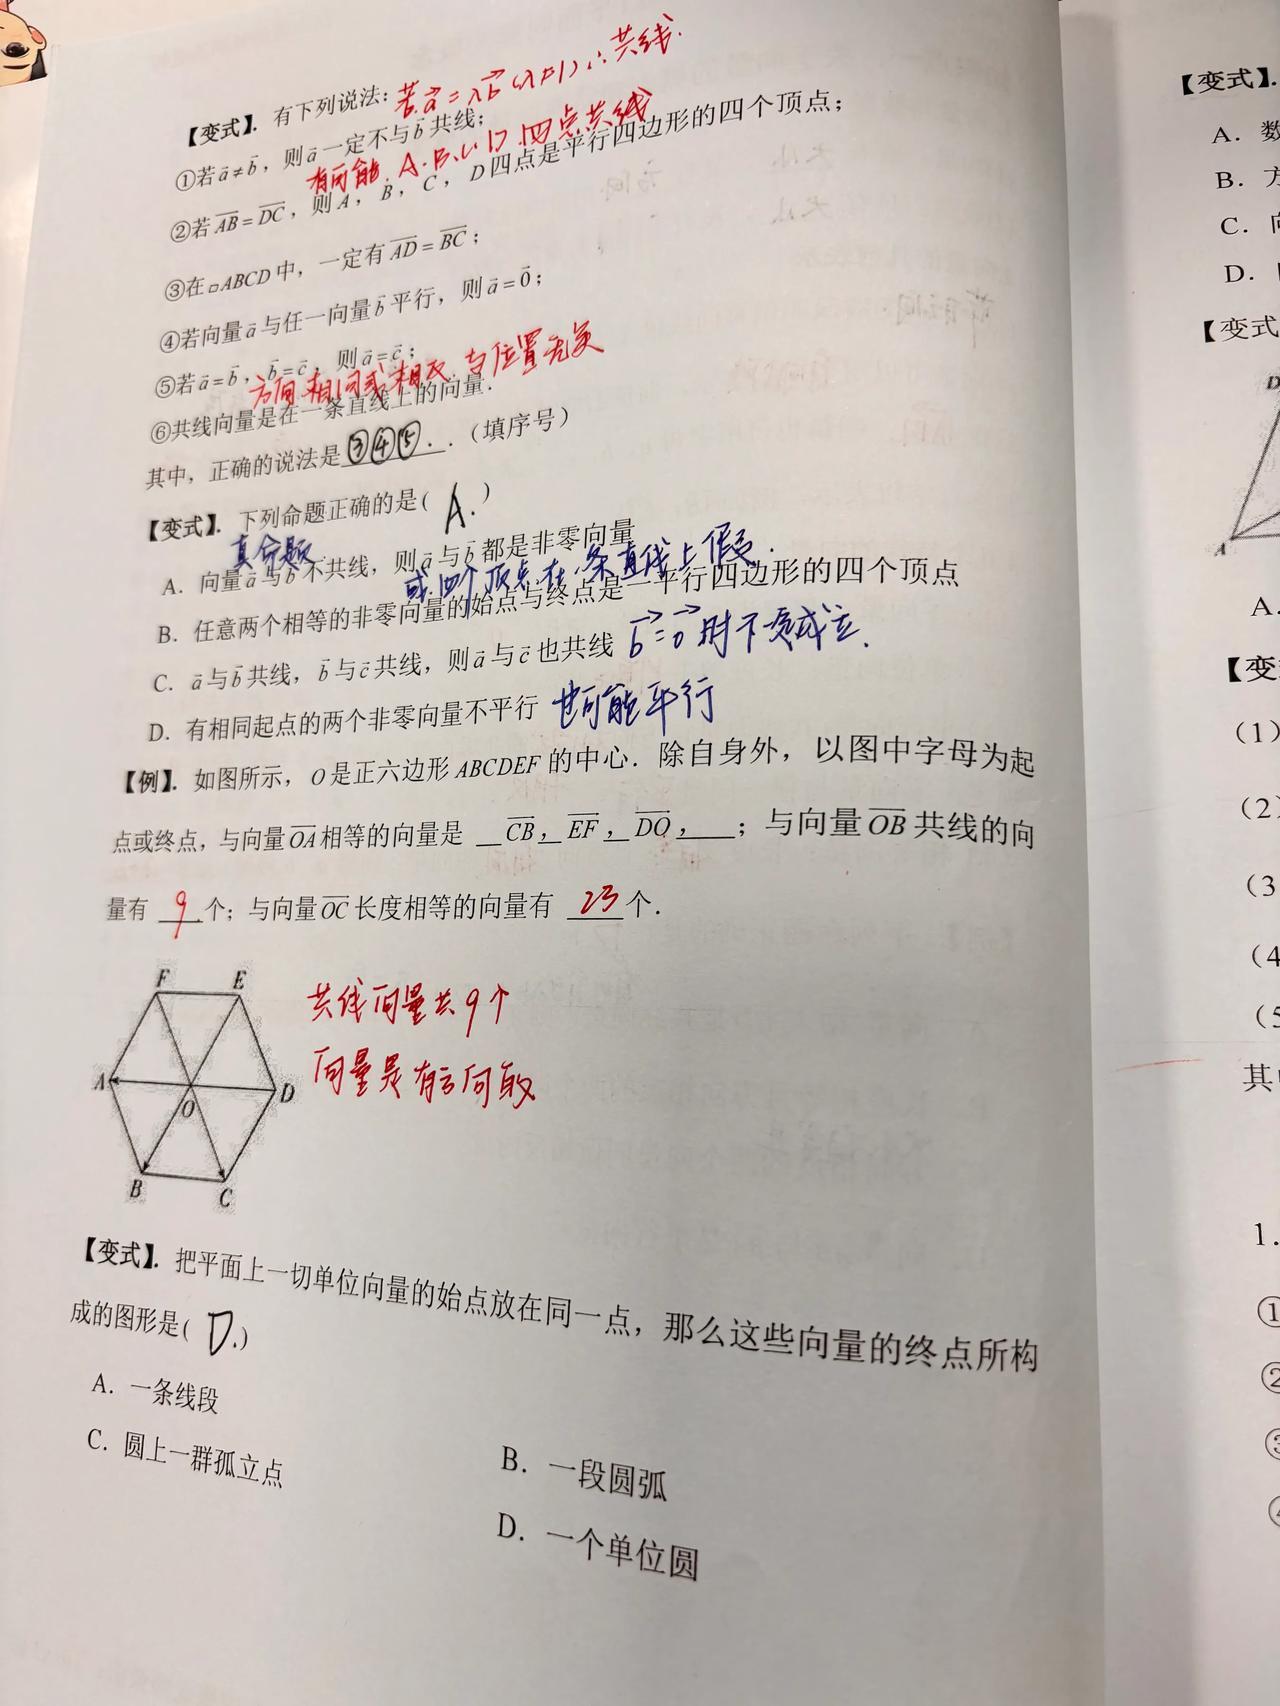 若a⃗=λb⃗(λ≠1)∴共线.
【变式】. 有下列说法:
①若a⃗≠b⃗，则a⃗一定不与b⃗共线;
有可能. A.B.C.D.四点共线
②若AB=DC，则A，B，C，D四点是平行四边形的四个顶点;
③在▱ABCD中，一定有AD=BC;
④若向量a⃗与任一向量b⃗平行，则a⃗=0⃗;
⑤若a⃗=b⃗，b⃗=c⃗，则a⃗=c⃗;
方向相同或相反.与位置无关
⑥共线向量是在一条直线上的向量.
其中，正确的说法是③④⑤..（填序号）
【变式】. 下列命题正确的是( A. )
真命题.
A. 向量a⃗与b⃗不共线，则a⃗与b⃗都是非零向量
或四个顶点在一条直线上
B. 任意两个相等的非零向量的始点与终点是一平行四边形的四个顶点
C. a⃗与b⃗共线，b⃗与c⃗共线，则a⃗与c⃗也共线 b⃗=0⃗时不成立.
D. 有相同起点的两个非零向量不平行 也可能平行
【例】. 如图所示，O是正六边形ABCDEF的中心. 除自身外，以图中字母为起
点或终点，与向量OA相等的向量是 CB, EF, DO, ;与向量OB共线的向
量有 9 个;与向量OC长度相等的向量有 23 个.
F E
共线向量共9个
向量是有方向的
A O D
B C
【变式】. 把平面上一切单位向量的始点放在同一点，那么这些向量的终点所构
成的图形是( D.)
A. 一条线段
B. 一段圆弧
C. 圆上一群孤立点
D. 一个单位圆
【变式】.
A. 数
B. 方
C. 向
D.
【变式
D
A
A.
【变
(1)
(2)
(3
(4
(5
其中
1.
①
②
③
④